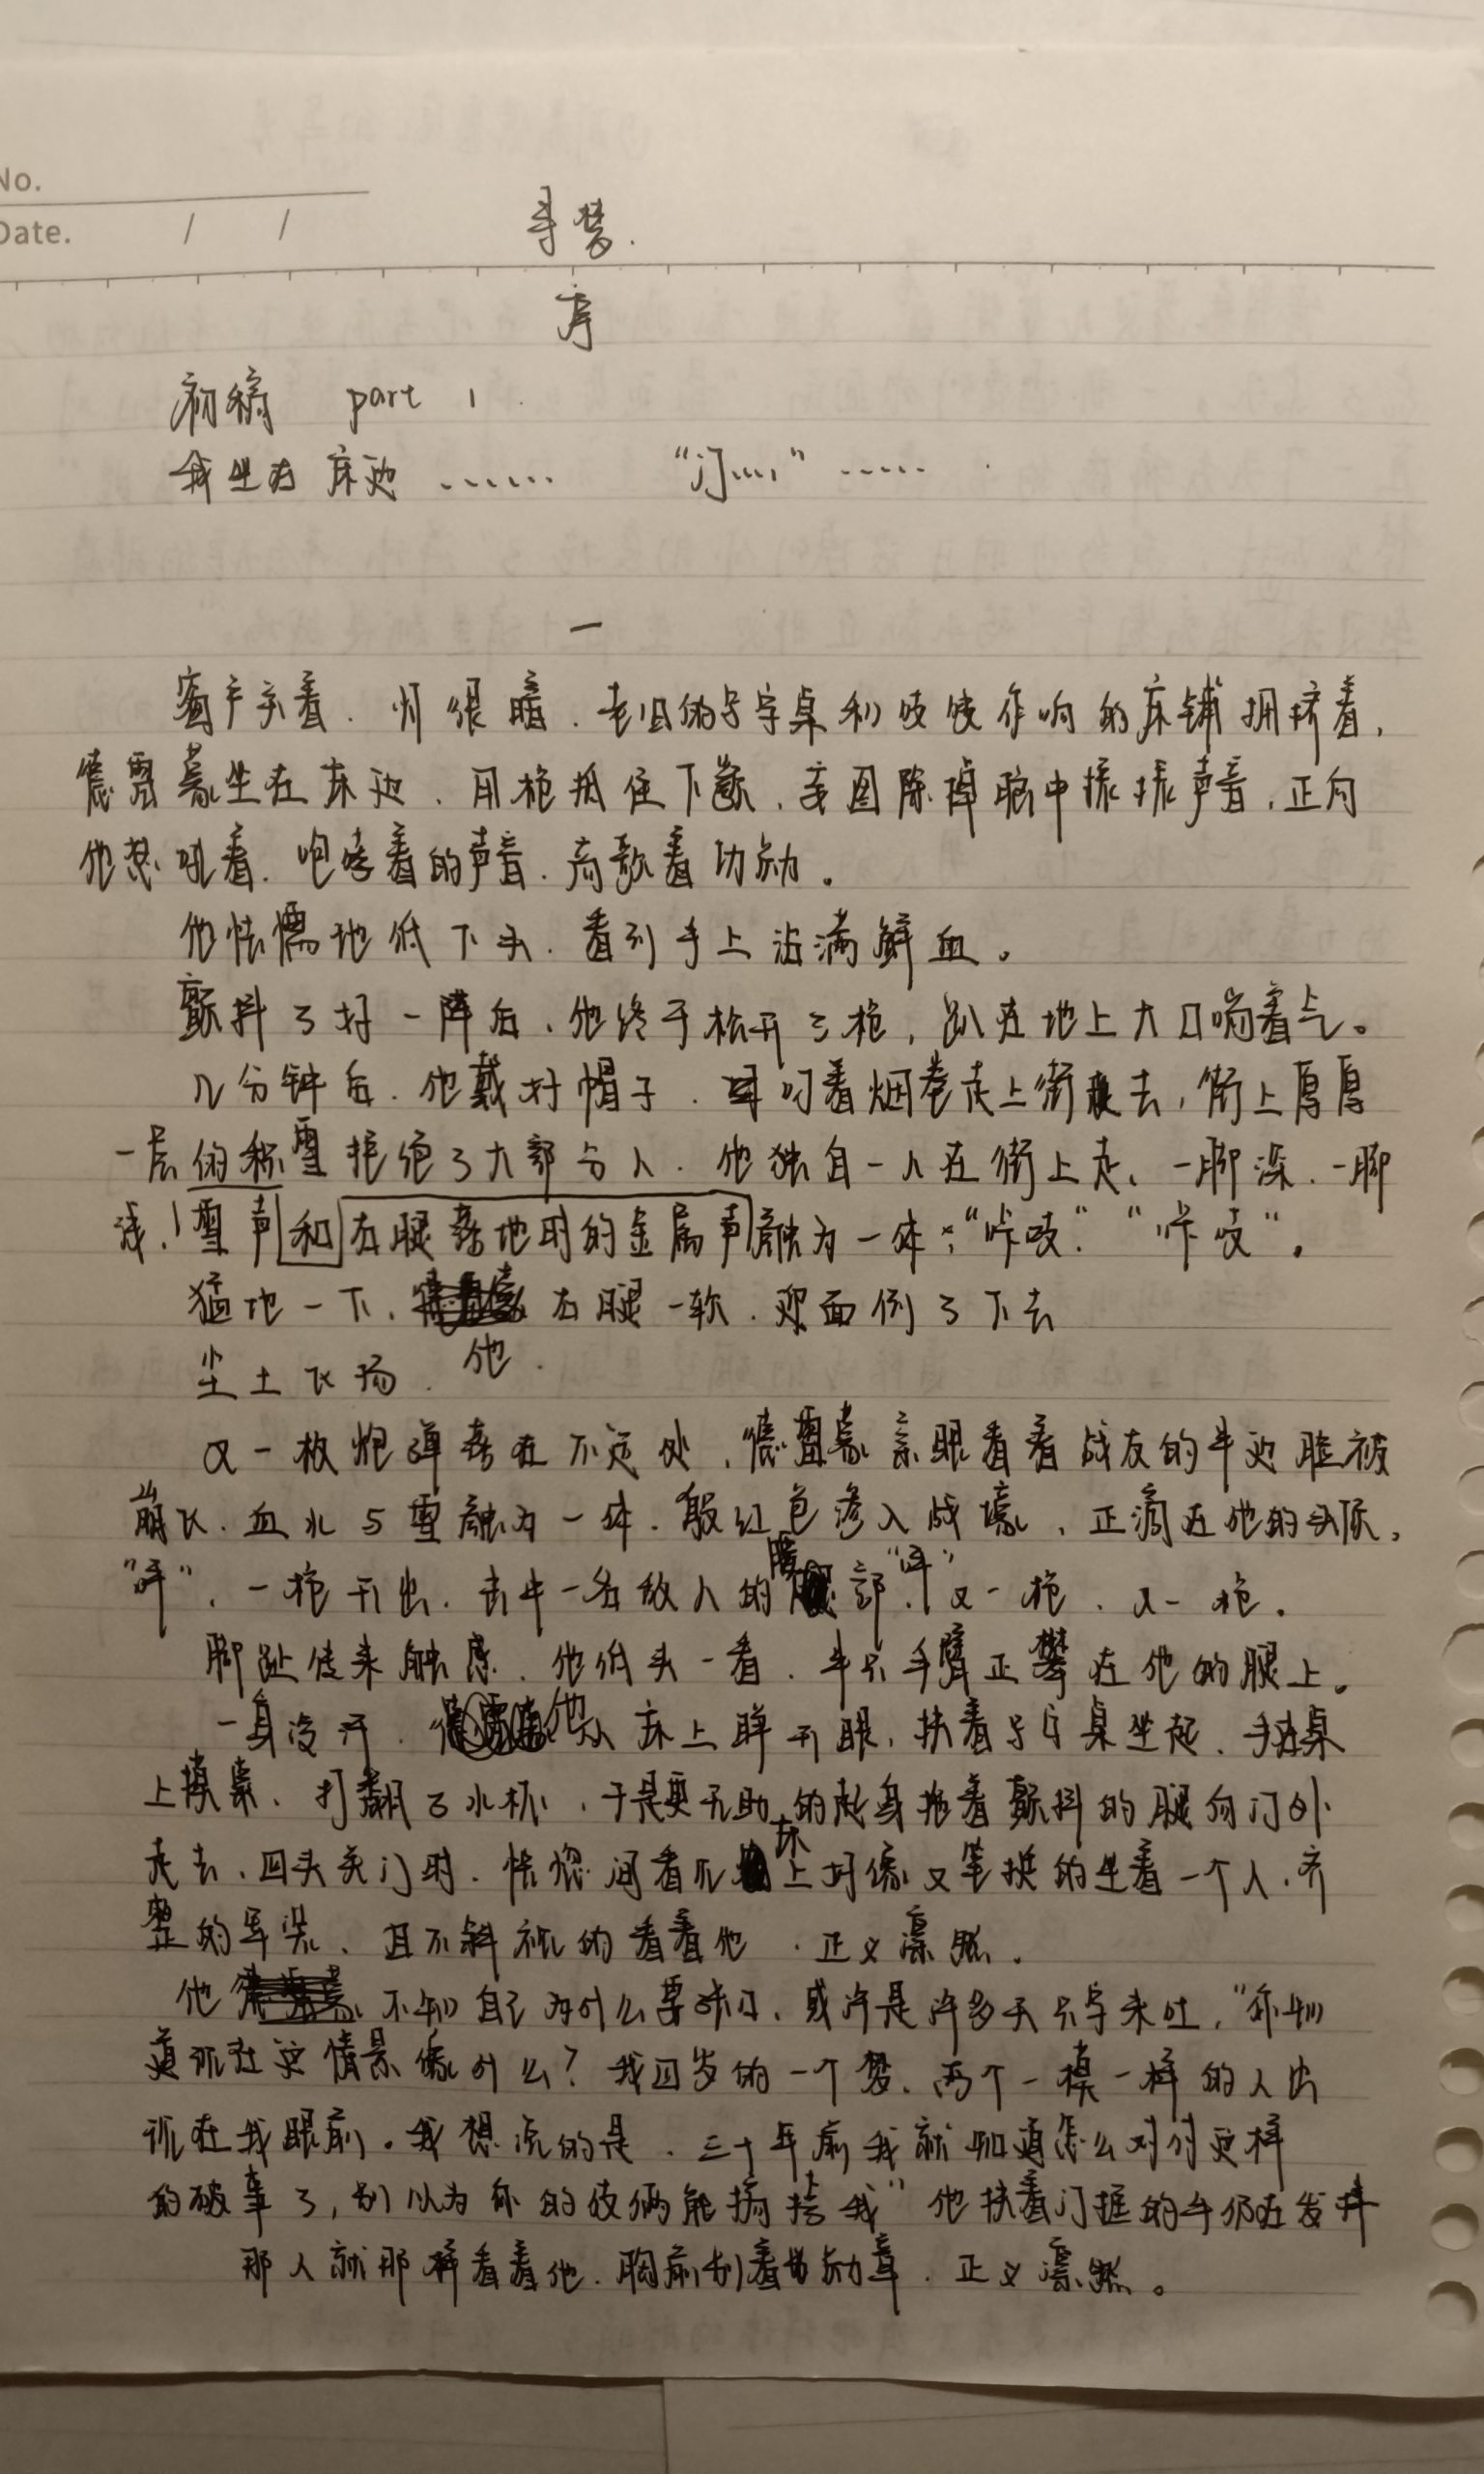 No.
Date. / /
寻梦.
序
初稿 part 1.
我坐在床边…… “门……” ……
一
窗户关着,灯很暗,老旧的写字桌和吱吱作响的床铺拥挤着,
德雷蒙坐在床边,用枪抵住下颚,妄图除掉脑中振振声音,正向
他怒吼着,咆哮着的声音,高歌着功勋。
他怯懦地低下头,看到手上沾满鲜血。
颤抖了好一阵后,他终于松开了枪,趴在地上大口喘着气。
几分钟后,他戴好帽子,叼着烟卷走上街去,街上厚厚
一层的积雪拒绝了大部分人,他独自一人在街上走,一脚深,一脚
浅,雪声和右腿落地时的金属声融为一体:“咔吱”“咔吱”。
猛地一下,他右腿一软,迎面倒了下去
尘土飞扬.
又一枚炮弹落在不远处,德雷蒙亲眼看着战友的半边脸被
崩飞,血水与雪融为一体,殷红色渗入战壕,正滴在他的头顶,
“呯”,一枪开出,击中一名敌人的腰部,“呯”又一枪,又一枪.
脚趾传来触感,他低头一看,半只手臂正攀在他的腿上。
一身冷汗,他从床上睁开眼,扶着写字桌坐起,手在桌
上摸索,打翻了水杯,于是更无助的起身拖着颤抖的腿向门外
走去,回头关门时,恍惚间看见床上好像又笔挺的坐着一个人,齐
整的军装,目不斜视的看着他,正义凛然.
他不知自己为什么要味门,或许是许多天只字未吐,“你知
道现在这情景像什么?我四岁的一个梦,两个一模一样的人出
现在我眼前。我想说的是,三十年前我就知道怎么对付这样
的破事了,别以为你的伎俩能搞垮我”他扶着门框的手仍在发抖
那人就那样看着他,胸前别着勋章,正义凛然。